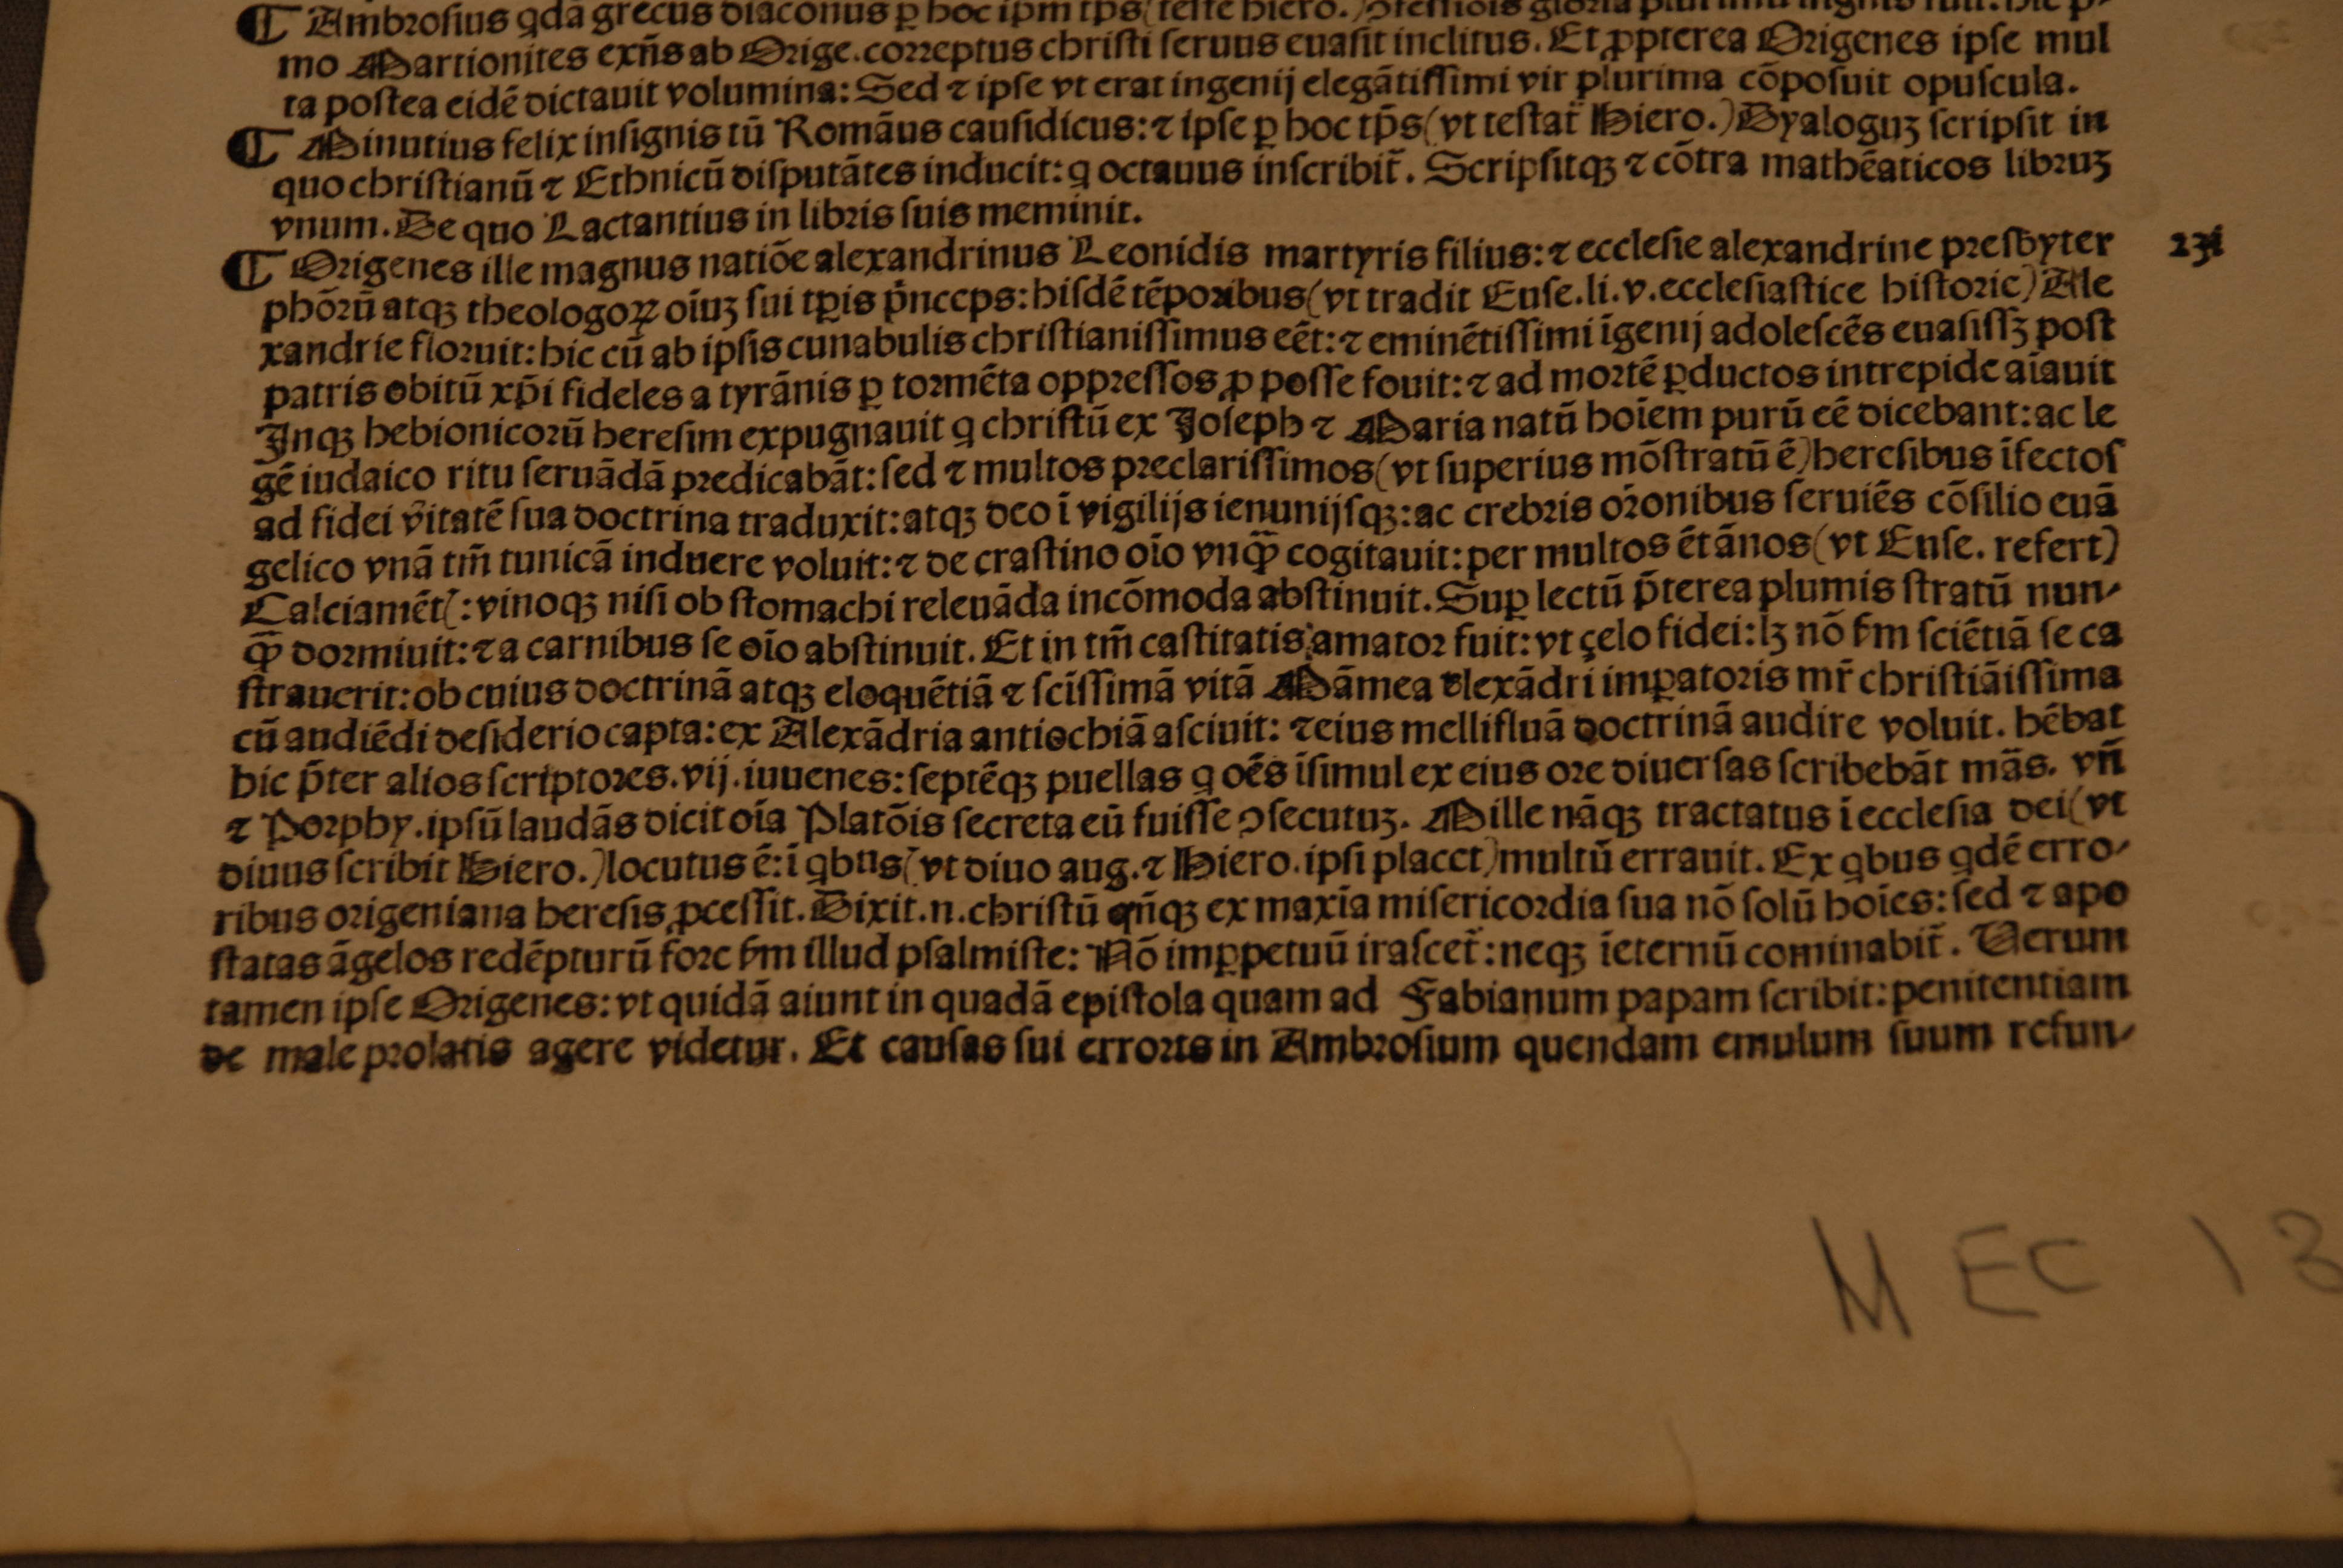 ¶ Ambrosius qdā grecus diaconus ꝑ hoc ipm tps (teste hiero.) ꝯfessiois gloria
mo Martionites exn̄s ab Orige. correptus christi seruus euasit inclitus. Et ꝓpterea Origenes ipse mul
ta postea eidē dictauit volumina: Sed ⁊ ipse vt erat ingenij elegātissimi vir plurima cōposuit opuscula.
¶ Minutius felix insignis tū Romāus causidicus: ⁊ ipse ꝑ hoc tp̄s (vt testat̄ Hiero.) Dyaloguʒ scripsit in
quo christianū ⁊ Ethnicū disputātes inducit: q octauus inscribit̄. Scripsitqʒ ⁊ cōtra mathēaticos libruʒ
vnum. De quo Lactantius in libris suis meminit.
¶ Origenes ille magnus natiōe alexandrinus Leonidis martyris filius: ⁊ ecclesie alexandrine presbyter 231
phōrū atqʒ theologoꝝ oīuʒ sui tꝑis p̄nceps: hisdē tēporibus (vt tradit Euse. li. v. ecclesiastice historie) Ale
xandrie floruit: hic cū ab ipsis cunabulis christianissimus eēt: ⁊ eminētissimi īgenij adolescēs euasissʒ post
patris obitū xp̄i fideles a tyrānis ꝑ tormēta oppressos ꝓ posse fouit: ⁊ ad mortē ꝑductos intrepide aīauit
Inqʒ hebionicorū heresim expugnauit q christū ex Joseph ⁊ Maria natū hoīem purū eē dicebant: ac le
gē iudaico ritu seruādā predicabāt: sed ⁊ multos preclarissimos (vt superius mōstratū ē) heresibus īfectos
ad fidei v̄itatē sua doctrina traduxit: atqʒ deo ī vigilijs ieiunijsqʒ: ac crebris or̄onibus seruiēs cōsilio euā
gelico vnā tm̄ tunicā induere voluit: ⁊ de crastino oīo vnqꝫ̄ cogitauit: per multos ēt ānos (vt Euse. refert)
Calciamēt: vinoqʒ nisi ob stomachi releuāda incōmoda abstinuit. Suꝑ lectū p̄terea plumis stratū nun-
qꝫ̄ dormiuit: ⁊ a carnibus se oīo abstinuit. Et in tm̄ castitatis amator fuit: vt çelo fidei: lʒ nō ẜm sciētiā se ca
strauerit: ob cuius doctrinā atqʒ eloquētiā ⁊ scīssimā vitā Māmea alexādri imꝑatoris mr̄ christiāissima
cū audiēdi desiderio capta: ex Alexādria antiochiā asciuit: ⁊ eius mellifluā doctrinā audire voluit. hēbat
hic p̄ter alios scriptores. vij. iuuenes: septēqʒ puellas q oēs īsimul ex eius ore diuersas scribebāt mās. vn̄
⁊ Porphy. ipsū laudās dicit oīa Platōis secreta eū fuisse ꝯsecutuʒ. Mille nāqʒ tractatus ī ecclesia dei (vt
diuus scribit Hiero.) locutus ē: ī qbus (vt diuo aug. ⁊ Hiero. ipsi placet) multū errauit. Ex qbus qdē erro-
ribus origeniana heresis ꝓcessit. Dixit. n. christū qn̄qʒ ex maxīa misericordia sua nō solū hoīes: sed ⁊ apo
statas āgelos redēpturū fore ẜm illud psalmiste: Nō imꝑpetuū irascet̄: neqʒ īeternū cominabit̄. Verum
tamen ipse Origenes: vt quidā aiunt in quadā epistola quam ad Fabianum papam scribit: penitentiam
de male prolatis agere videtur. Et causas sui erroris in Ambrosium quendam emulum suum refun-
MEC 13